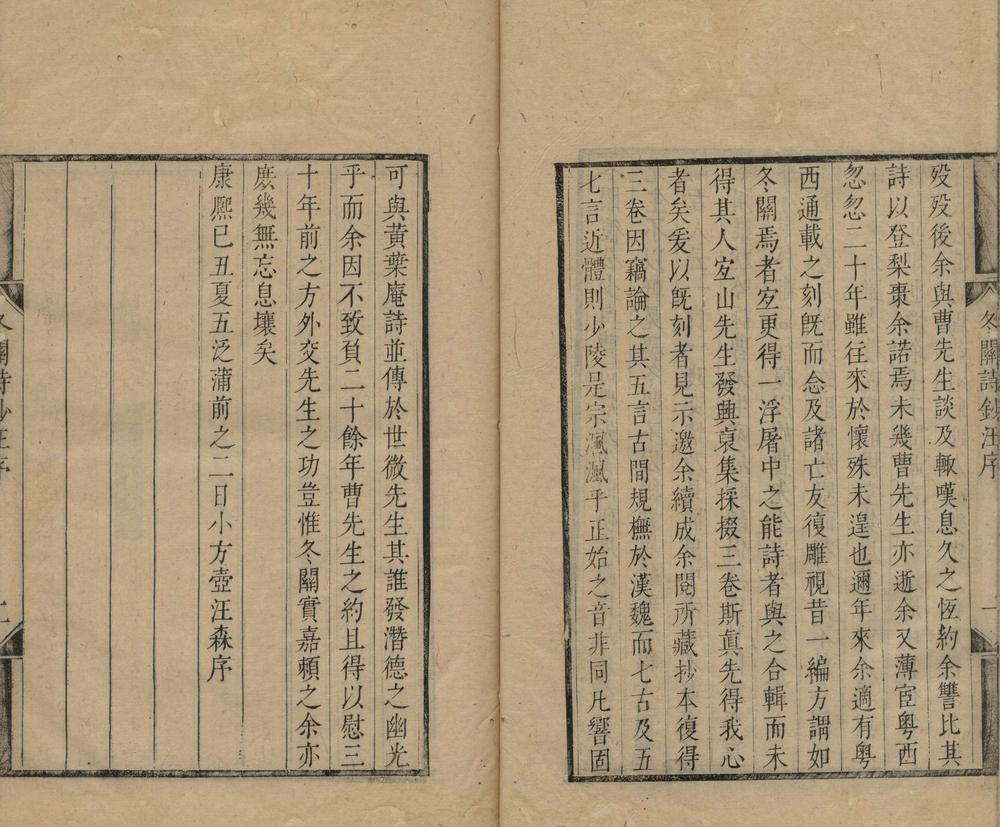 冬關詩鈔汪序
一
歿歿後余與曹先生談及輙嘆息久之恆約余讐比其
詩以登梨棗余諾焉未幾曹先生亦逝余又薄宦粤西
忽忽二十年雖往來於懷殊未遑也邇年來余適有粤
西通載之刻旣而念及諸亡友復雕視昔一編方謂如
冬關焉者宐更得一浮屠中之能詩者與之合輯而未
得其人宐山先生發興裒集採掇三卷斯眞先得我心
者矣爰以旣刻者見示邀余續成余閱所藏抄本復得
三卷因竊論之其五言古間規橅於漢魏而七古及五
七言近體則少陵是宗渢渢乎正始之音非同凡響固
可與黃葉庵詩並傳於世微先生其誰發潛德之幽光
乎而余因不致負二十餘年曹先生之約且得以慰三
十年前之方外交先生之功豈惟冬關實嘉頼之余亦
庶幾無忘息壤矣
康熈己丑夏五泛蒲前之二日小方壺汪森序
冬關詩鈔汪序
二